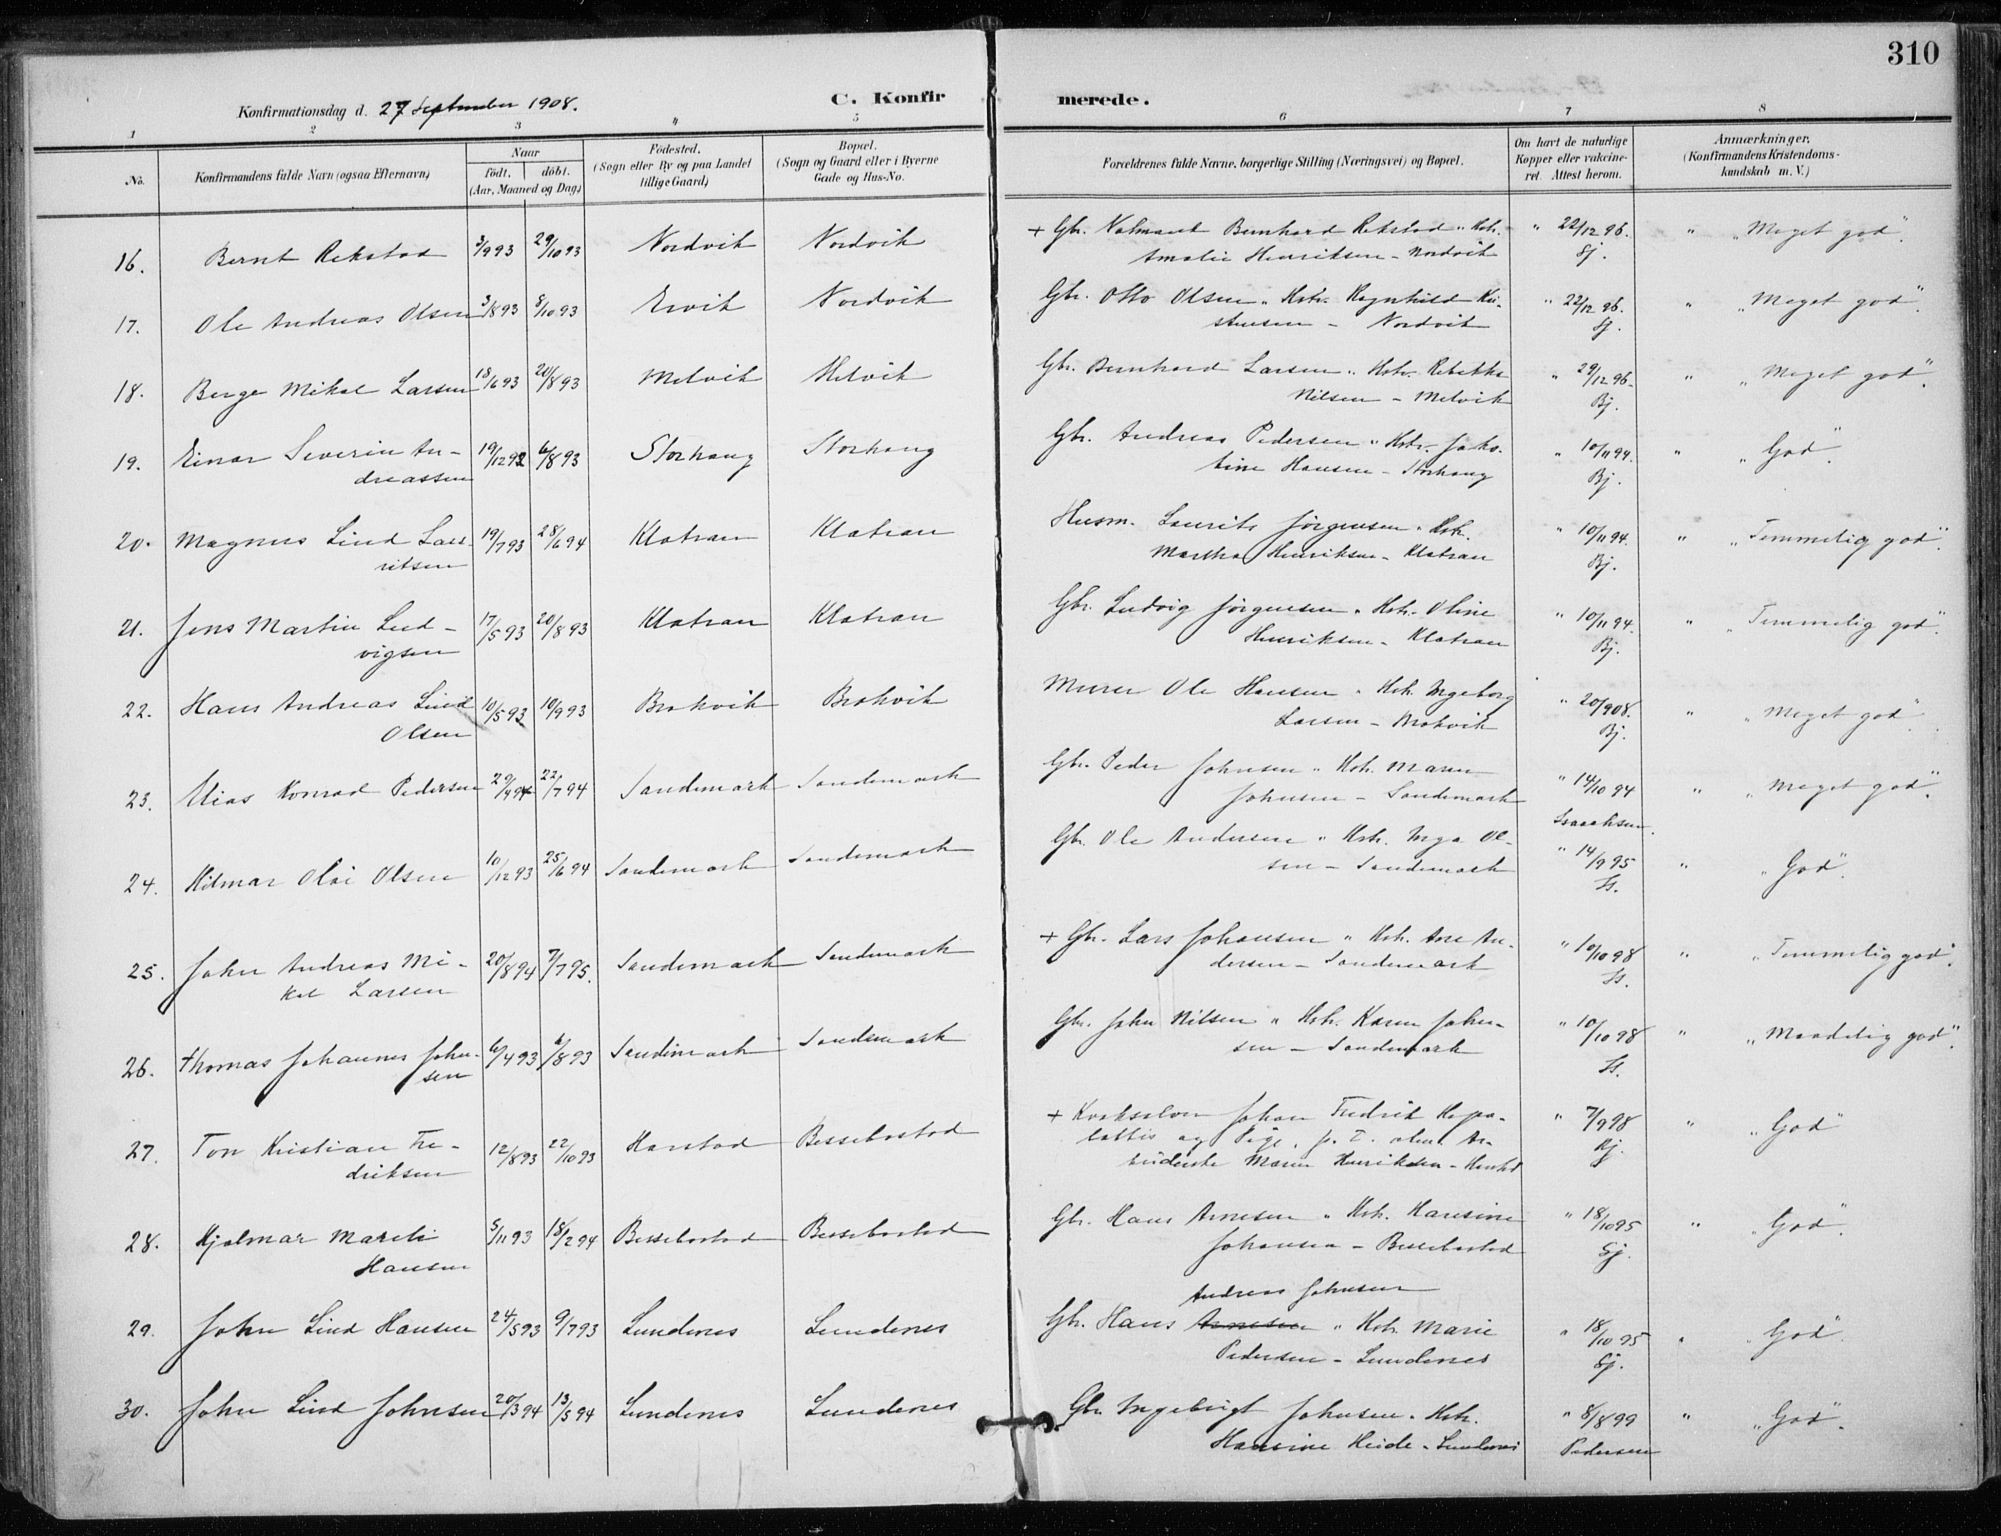 310
Konfirmationsdag d. 27 September 1908.
C. Konfirmerede.
1 2 3 4 5 6 7 8
No.
Konfirmandens fulde Navn (ogsaa Efternavn)
Naar
født. døbt.
(Aar, Maaned og Dag)
Fødested.
(Sogn eller By og paa Landet
tillige Gaard)
Bopæl.
(Sogn og Gaard eller i Byerne
Gade og Hus-No.
Forældrenes fulde Navne, borgerlige Stilling (Næringsvei) og Bopæl.
Om havt de naturlige
Kopper eller vakcineret.
Attest herom.
Anmærkninger.
(Konfirmandens Kristendoms-
kundskab m. V.)
16. Bernt Rekstad 3/9 93 29/10 93 Nordvik Nordvik + Gbr. Bernhard Rekstad " Hstr. " 22/12 96. " "Meget god".
Amalie Henriksen - Nordvik Ej.
17. Ole Andreas Olsen 3/8 93 8/10 93 Ervik Nordvik Gbr. Otto Olsen " Hstr. Ragnhild Kri- " 22/12 96. " "Meget god".
stensen - Nordvik Ej.
18. Berge Mikal Larsen 18/6 93 20/8 93 Melvik Melvik Gbr. Bernhard Larsen " Hstr. Rebekka " 29/12 96. " "Meget god".
Nilsen - Melvik Bj.
19. Einar Severin An- 19/12 92 6/8 93 Storhaug Storhaug Gbr. Andreas Pedersen " Hstr. Jako- " 10/11 94. " "God".
dreassen bine Hansen - Storhaug Bj.
20. Magnus Lind Lau- 19/7 93 28/6 94 Klatran Klatran Husm. Laurits Jørgensen " Hstr. " 10/11 94. " "Temmelig god".
ritsen Martha Henriksen - Klatran Bj.
21. Jens Martin Lud- 17/5 93 20/8 93 Klatran Klatran Gbr. Ludvig Jørgensen " Hstr. Oline " 10/11 94. " "Temmelig god".
vigsen Henriksen - Klatran Bj.
22. Hans Andreas Lind 10/5 93 10/9 93 Brokvik Brokvik Murer Ole Hansen " Hstr. Ingeborg " 20/9 08. " "Meget god".
Olsen Larsen - Brokvik Bj.
23. Elias Konrad Pedersen 29/4 94 22/7 94 Sandemark Sandemark Gbr. Peder Johnsen " Hstr. Maren " 14/10 94 " "Meget god".
Johnsen - Sandemark Isaachsen.
24. Hilmar Olai Olsen 10/12 93 25/6 94 Sandemark Sandemark Gbr. Ole Andersen " Hstr. Inga Ol- " 14/9 95 " "God".
sen - Sandemark Is.
25. John Andreas Mi- 20/8 94 7/7 95. Sandemark Sandemark + Gbr. Lars Johansen " Hstr. Ane An- " 10/10 98 " "Temmelig god".
kal Larsen dersen - Sandemark Is.
26. Thomas Johannes John- 6/4 93 6/8 93 Sandemark Sandemark Gbr. John Nilsen " Hstr. Karen John- " 10/10 98 " "Maadelig god".
sen sen - Sandemark Is.
27. Ton Kristian Fre- 12/8 93 22/10 93 Harstad Bessebostad + Kvaksalver Johan Fredrik " 7/9 98 " "God"
driksen og Pige, p. T. Maren Henriksen Bj.
28. Hjalmar Mareli 5/11 93 18/2 94 Bessebostad Bessebostad Gbr. Hans Arnesen " Hstr. Hansine " 18/10 95 " "God".
Hansen Johansen - Bessebostad Ej.
Andreas Johnsen
29. John Lind Hansen 24/5 93 9/7 93 Lundenes Lundenes Gbr. Hans Arnesen " Hstr. Marie " 18/10 95 " "God".
Pedersen - Lundenes Ej.
30. John Lind Johnsen 20/3 94 13/5 94 Lundenes Lundenes Gbr. Ingebrigt Johnsen " Hstr. " 8/8 99 " "God".
Hansine Heide - Lundenes Pedersen